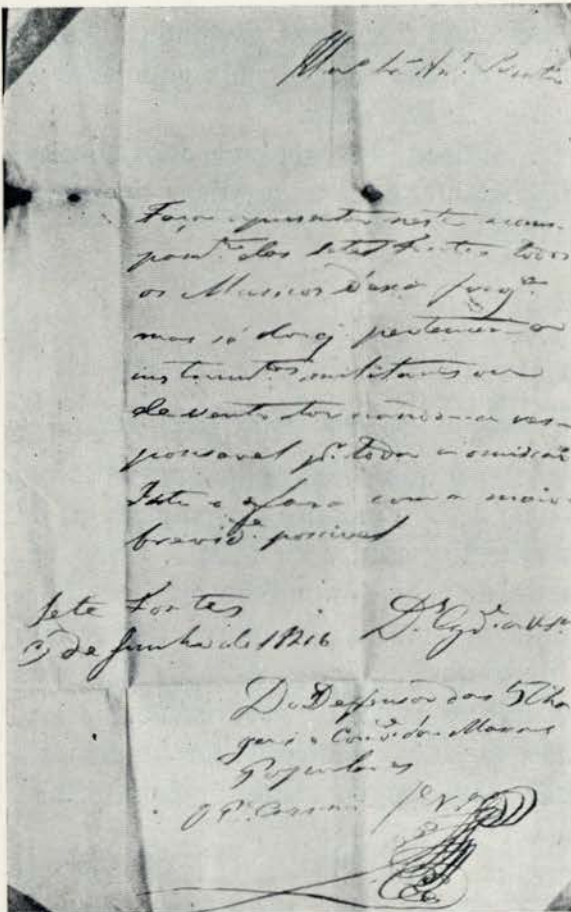 Faça apresentar neste acam-
pam.to das Sete Fontes todos
os Musicos dessa freg.a
mas só dos q pertencem a
instrum.tos militares ou
de vento tornando-o res-
ponsavel p.r toda a omissão
Isto o fara com a maior
brevid.e possivel
Sete Fontes
de Junho de 1846 D.s G.de a V. S.a
Do Deffensor das 5 Cha
gas e Com.de das Massas
Populares
O P.e Casimiro